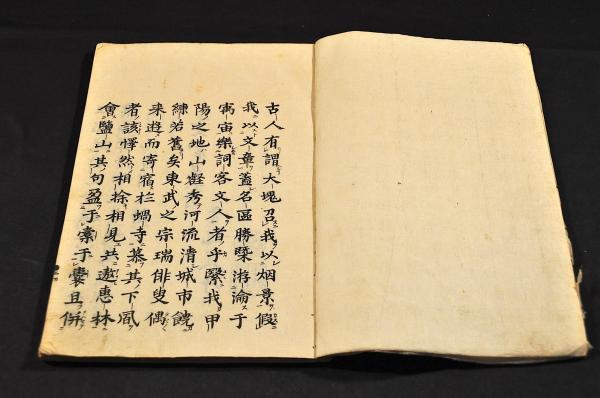 古人有謂大塊召我以烟景假
我以文章蓋名區勝槩游淪于
寓宙樂詞客文人者乎繄我甲
陽之地山壑秀河流清城市饒
治舊矣東武之宗瑞俳叟偶
来遊而寄宿於蝸寺慕其下風
者該懌然相相見共遨惠林
會鹽山其句盈于橐于囊且併